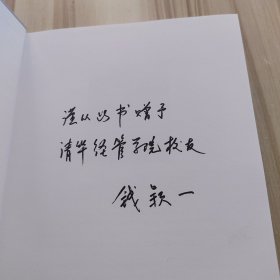 谨以此书赠予
清华经管学院校友
钱颖一